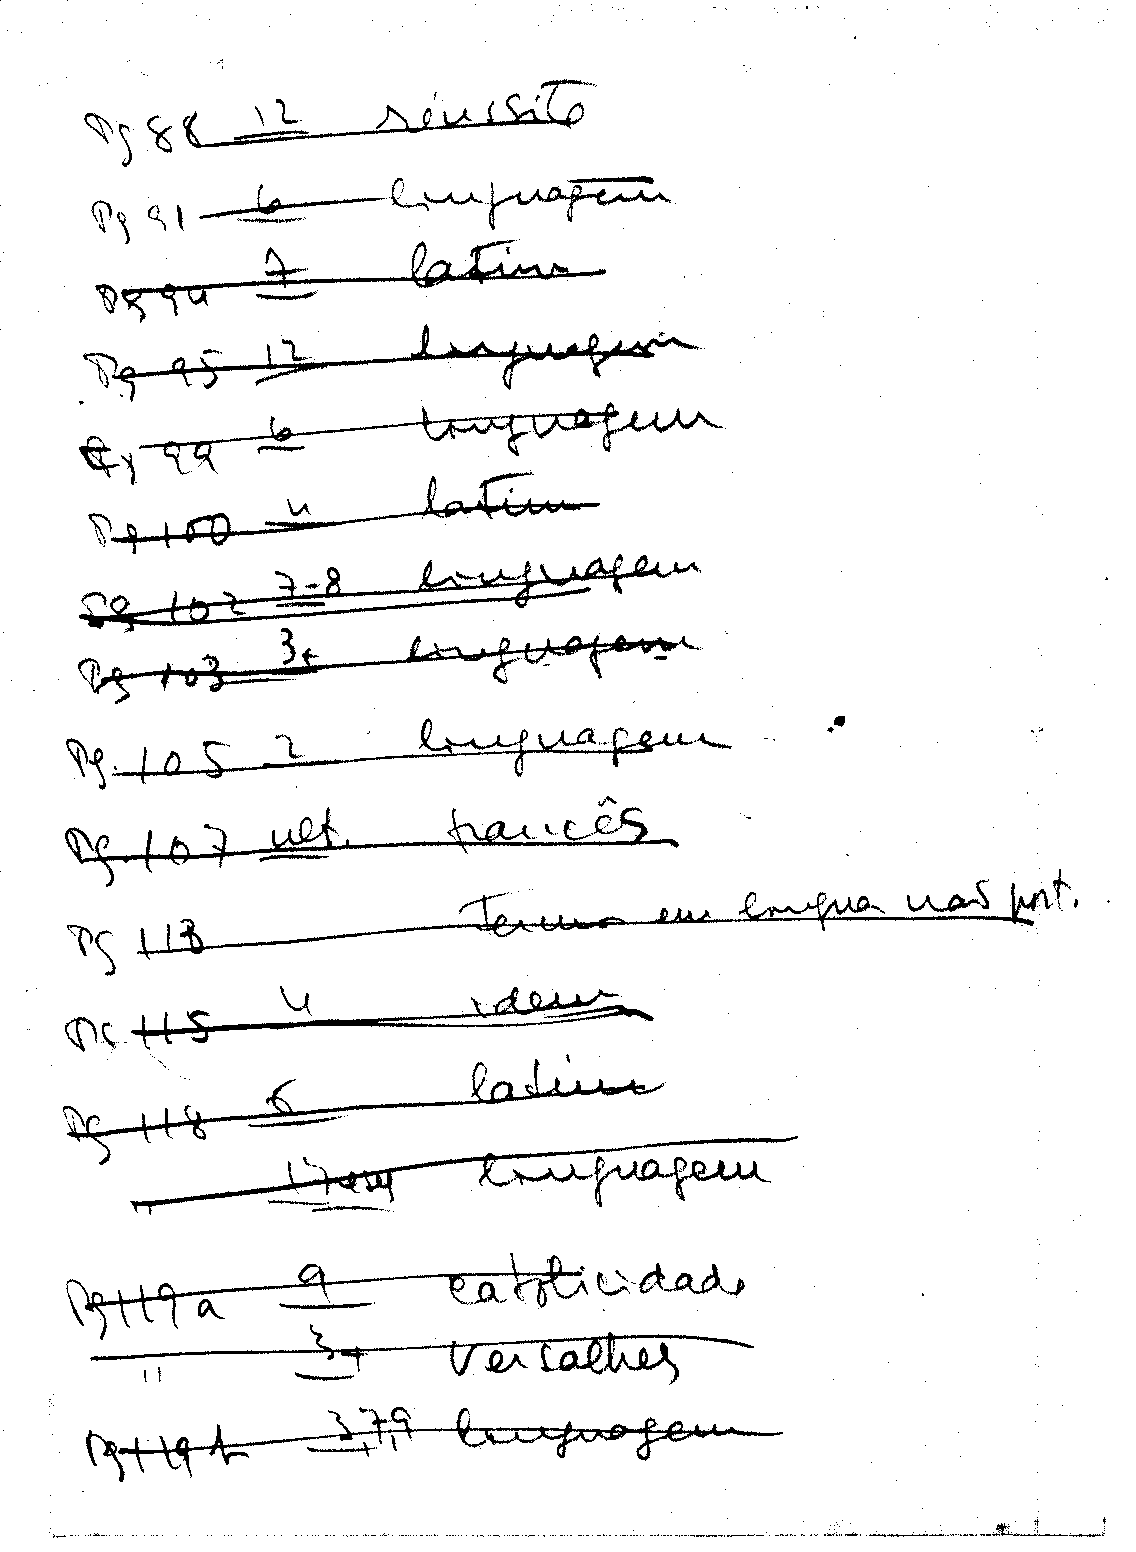 Pg 88 12 réussite
Pg 91 6 linguagem
Pg 94 7 latim
Pg 95 12 linguagem
Pg 99 6 linguagem
Pg 100 4 latim
Pg 102 7-8 linguagem
Pg 103 3+ linguagem
Pg. 105 2 linguagem
Pg. 107 ult. francês
Pg 113 Termo em língua não port.
Pg 115 4 idem
Pg 118 6 latim
" 17 linguagem
Pg 119a 9 catolicidade
" 3+ Versalhes
Pg 119b 3,7,9 linguagem